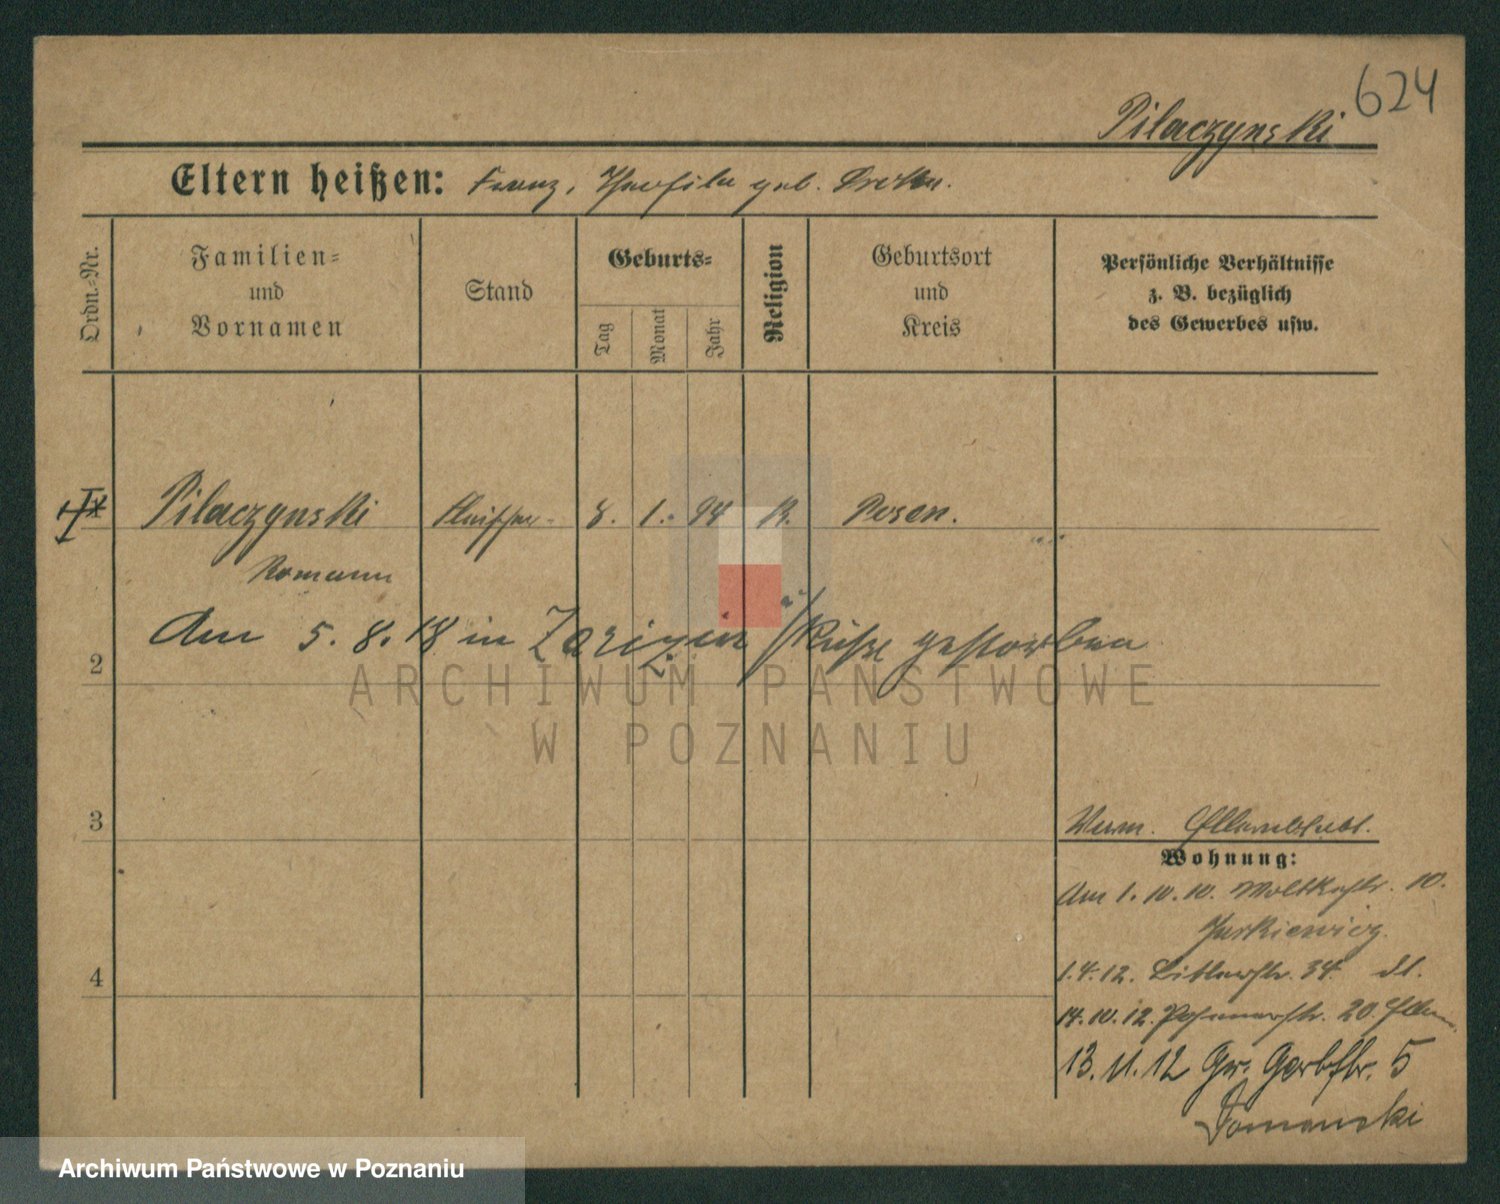 624
Pilaczynski
Eltern heißen: Franz, geb.
Ordn.-Nr.
Familien-
und
Vornamen
Stand
Geburts-
Tag
Monat
Jahr
Religion
Geburtsort
und
Kreis
Persönliche Verhältnisse
z. B. bezüglich
des Gewerbes usw.
Pilaczynski 8. 1. 94 K. Posen.
Romann
Am 5. 8. 18 in Zarizin gestorben
2
ARCHIWUM PAŃSTWOWE
W POZNANIU
3
Wohnung:
Am 1. 10. 10. Moltkestr. 10.
Jurkiewicz.
4
1.4.12. 34.
14.10.12. Posenerstr. 20.
13.11.12 Gr. Gerbstr. 5
Domanski
Archiwum Państwowe w Poznaniu